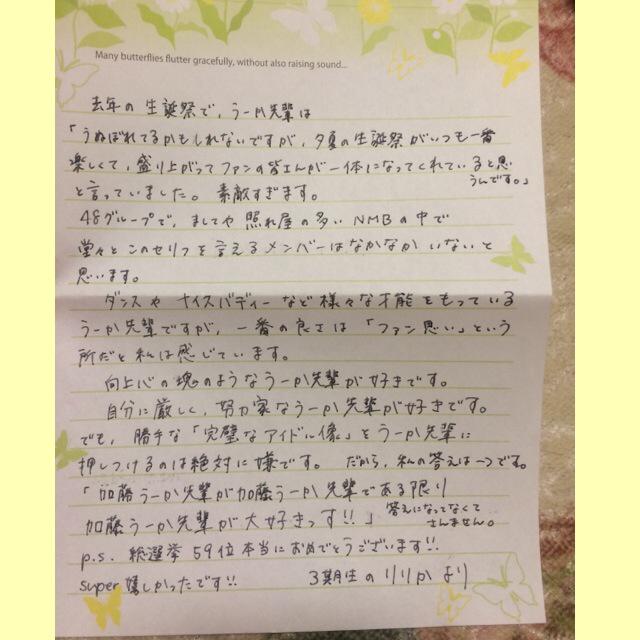 Many butterflies flutter gracefully, without also raising sound...
去年の生誕祭で、うーか先輩は
「うぬぼれてるかもしれないですが、夕夏の生誕祭がいつも一番
楽しくて、盛り上がってファンの皆さんが一体になってくれていると思
うんです。」
と言っていました。素敵すぎます。
48グループで、ましてや照れ屋の多いNMBの中で
堂々とこのセリフを言えるメンバーはなかなかいないと
思います。
ダンスやナイスバディーなど様々な才能をもっている
うーか先輩ですが、一番の良さは「ファン思い」という
所だと私は感じています。
向上心の塊のようなうーか先輩が好きです。
自分に厳しく、努力家なうーか先輩が好きです。
でも、勝手な「完璧なアイドル像」をうーか先輩に
押しつけるのは絶対に嫌です。だから、私の答えは一つです。
「加藤うーか先輩が加藤うーか先輩である限り
加藤うーか先輩が大好きっす!!」
答えになってなくて
さんません。
p.s. 総選挙59位本当におめでとうございます!!
super嬉しかったです!!
3期生のりりかより